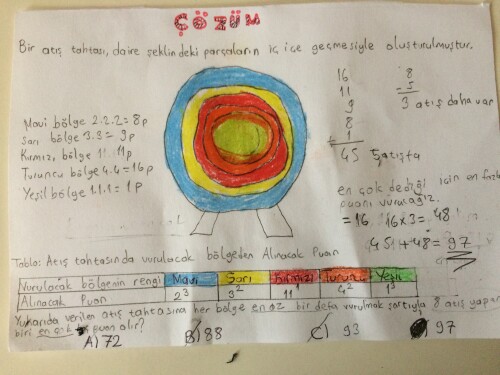 ÇÖZÜM
Bir atış tahtası, daire şeklindeki parçaların iç içe geçmesiyle oluşturulmuştur.
Mavi bölge 2.2.2=8p
Sarı bölge 3.3=9p
Kırmızı bölge 11 11p
Turuncu bölge 4.4=16p
Yeşil bölge 1.1.1=1p
16
11
9
8
+ 1
45 5 atışta
8
- 5
3 atış daha var
en çok dediği için en fazla
puanı vuracağız.
=16 16x3=48
45+48=97
Tablo: Atış tahtasında vurulacak bölgeden Alınacak Puan
Vurulacak bölgenin rengi Mavi Sarı Kırmızı Turuncu Yeşil
Alınacak Puan 2³ 3² 11¹ 4² 1³
Yukarıda verilen atış tahtasına her bölge en az bir defa vurulmak şartıyla 8 atış yapan
biri en çok puan alır?
A) 72 B) 88 C) 93 97